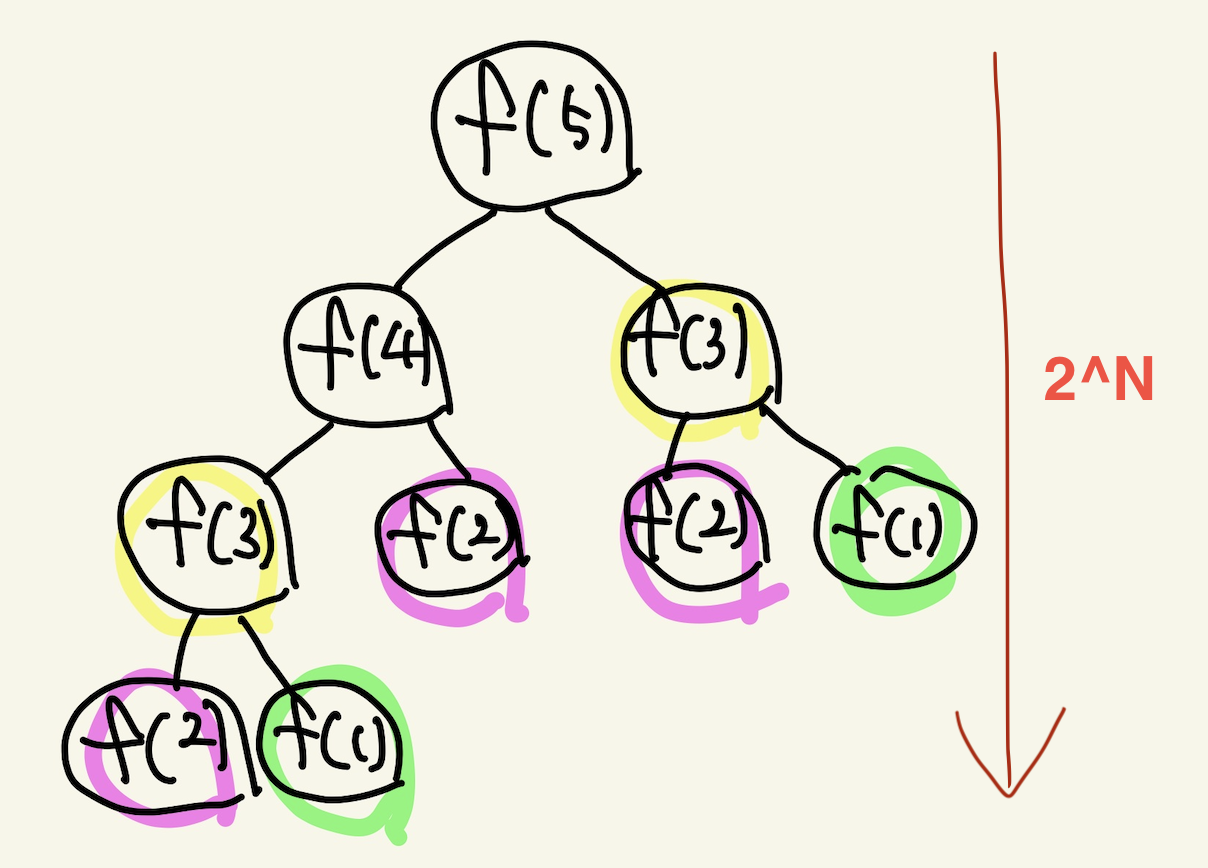 f(5)
f(4)
f(3)
2^N
f(3)
f(2)
f(2)
f(1)
f(2)
f(1)